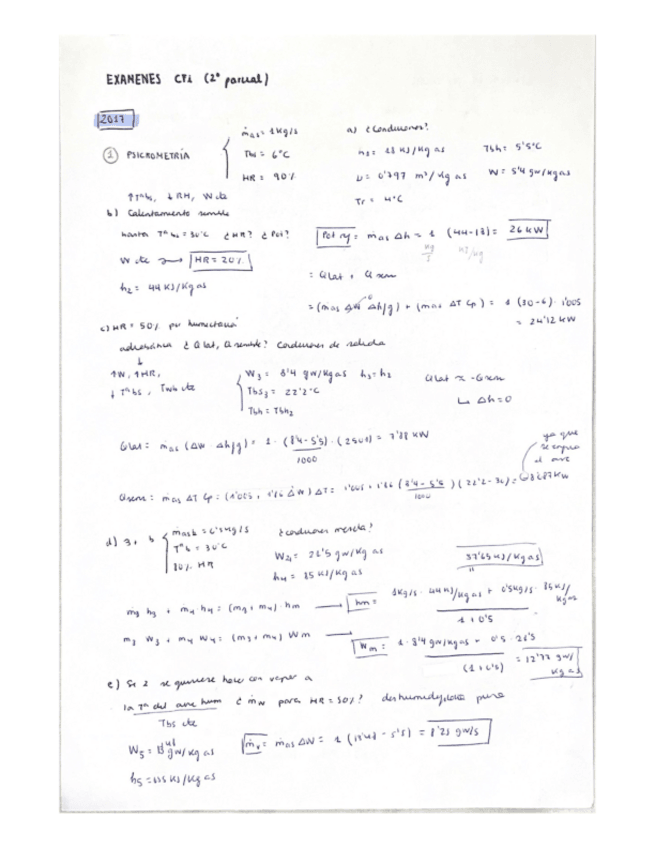 EXAMENES CTi (2º parcial)
2017
① PSICROMETRÍA
ṁas = 1 Kg/s
Tbs = 6ºC
HR = 90%
a) ¿Condiciones?
Tbh = 5'5ºC
υ = 0'797 m³/Kg as
W = 5'4 gw/Kg as
Tr = 4ºC
↑Tªbs, ↓RH, W cte
b) Calentamiento sensible
hasta Tªbs = 30ºC ¿HR? ¿Pot?
W cte → HR = 20%
h2 = 44 KJ/Kg as
= ṁas Δh = 1 (44-18) = 26 kW
= Qlat + Qsen
= (ṁas ΔW Δhfg) + (ṁas ΔT Cp) = 1 (30-6) · 1'005
= 24'12 kW
c) HR = 50% por
adiabática ¿Qlat, Qsensible? Condiciones de salida
↓
↑W, ↑HR,
↓Tªbs, Twb cte
W3 = 8'4 gw/Kg as h3 = h2
Tbs3 = 22'2ºC
Tbh = Tbh2
Qlat ≈ -Qsen
↳ Δh = 0
Qlat = ṁas (ΔW Δhfg) = 1 · (8'4 - 5'5) · (2501) = 7'88 kW
1000
ya que
se
el aire
Qsens = ṁas ΔT Cp = (1'005 + 1'86 ΔW) ΔT = 1'005 + 1'86 (8'4 - 5'5) (22'2 - 30) =
1000
d) 3 + 4
Tªb = 30ºC
80% HR
¿condiciones mezcla?
W4 = 21'5 gw/Kg as
h4 = 85 KJ/Kg as
37'65 KJ/Kg as
m3 h3 + m4 · h4 = (m3 + m4) · hm → hm = 1Kg/s · 44 KJ/Kg as + 0'5Kg/s · 85 KJ/Kg as
1 + 0'5
m3 W3 + m4 W4 = (m3 + m4) Wm → Wm = 1 · 8'4 gw/Kg as + 0'5 · 21'5 = 12'77 gw/Kg as
(1 + 0'5)
e) Si 2 se quisiese hacer con vapor a
la Tª del aire hum ¿ṁw para HR = 50%?
Tbs cte
gw/Kg as
ṁv = ṁas ΔW = 1 (13'48 - 5'5) = 8'23 gw/s